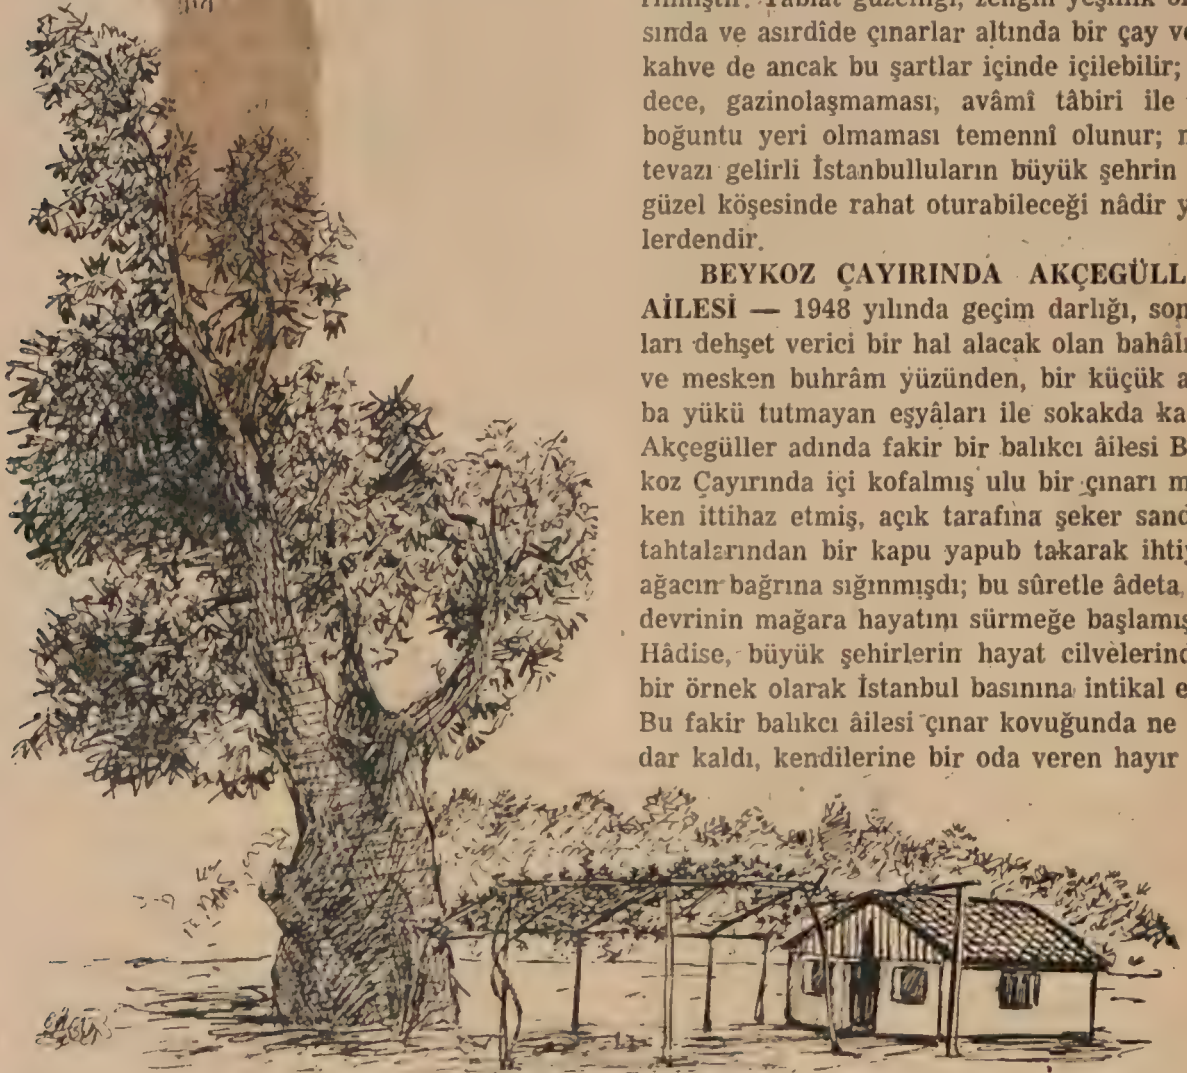 Tabiat güzelliği, zengin yeşillik
sında ve asırdîde çınarlar altında bir çay
kahve de ancak bu şartlar içinde içilebilir;
dece, gazinolaşmaması, avâmî tâbiri ile
boğuntu yeri olmaması temennî olunur;
tevazı gelirli İstanbulluların büyük şehrin
güzel köşesinde rahat oturabileceği nâdir
lerdendir.
BEYKOZ ÇAYIRINDA AKÇEGÜLL
AİLESİ — 1948 yılında geçim darlığı, son
ları dehşet verici bir hal alacak olan bahâlı
ve mesken buhrâm yüzünden, bir küçük a
ba yükü tutmayan eşyâları ile sokakda ka
Akçegüller adında fakir bir balıkcı âilesi B
koz Çayırında içi kofalmış ulu bir çınarı m
ken ittihaz etmiş, açık tarafına şeker sand
tahtalarından bir kapu yapub takarak ihti
ağacın bağrına sığınmışdı; bu sûretle âdeta,
devrinin mağara hayatını sürmeğe başlamış
Hâdise, büyük şehirlerin hayat cilvelerind
bir örnek olarak İstanbul basınına intikal e
Bu fakir balıkcı âilesi çınar kovuğunda ne
dar kaldı, kendilerine bir oda veren hayır